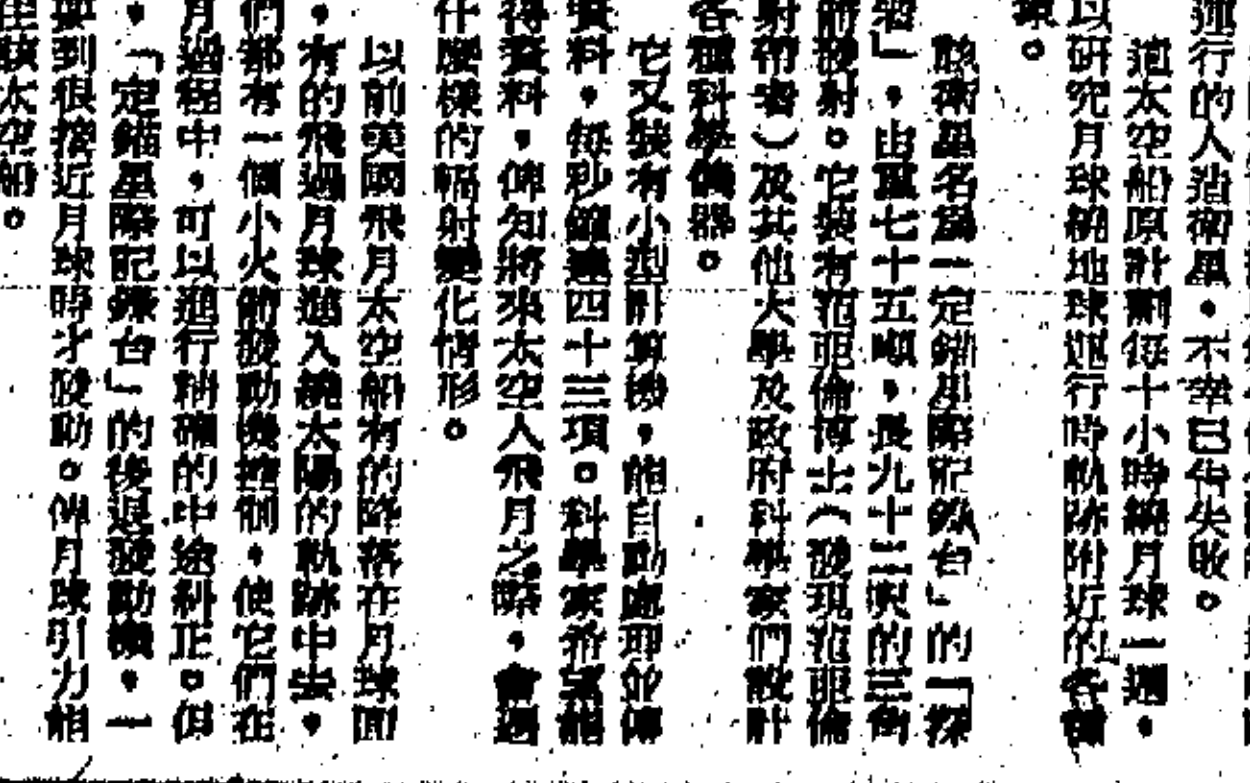 運行的人造衛星，不幸已告失敗。
這太空船原計劃每十小時繞月球一週，
以研究月球繞地球運行時軌跡附近的各種
該衛星名爲「定錨星際記錄台」的「探
，由重七十五噸，長九十二呎的三角
箭發射。它裝有范亞倫博士（發現范亞倫
射帶者）及其他大學及政府科學家們設計
各種科學儀器。
它又裝有小型計算機，能自動處理並傳
資料，每秒鐘達四十三項。科學家希望能
得資料，俾知將來太空人飛月之際，會遇
什麼樣的輻射變化情形。
以前美國飛月太空船有的降落在月球面
，有的飛過月球進入繞太陽的軌跡中去。
們都有一個小火箭發動機控制，使它們在
月過程中，可以進行精確的中途糾正。但
，「定錨星際記錄台」的後退發動機，一
要到很接近月球時才發動。俾月球引力能
住該太空船。